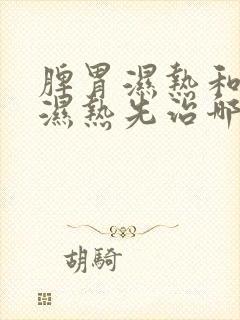 脾胃濕熱和
濕熱先治哪
胡騎